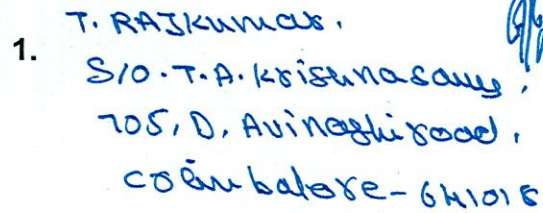 1.
T. RAJKumar.
S/O. T.A. Krishnasamy,
705, D, Avinashi road,
Coimbatore - 641018